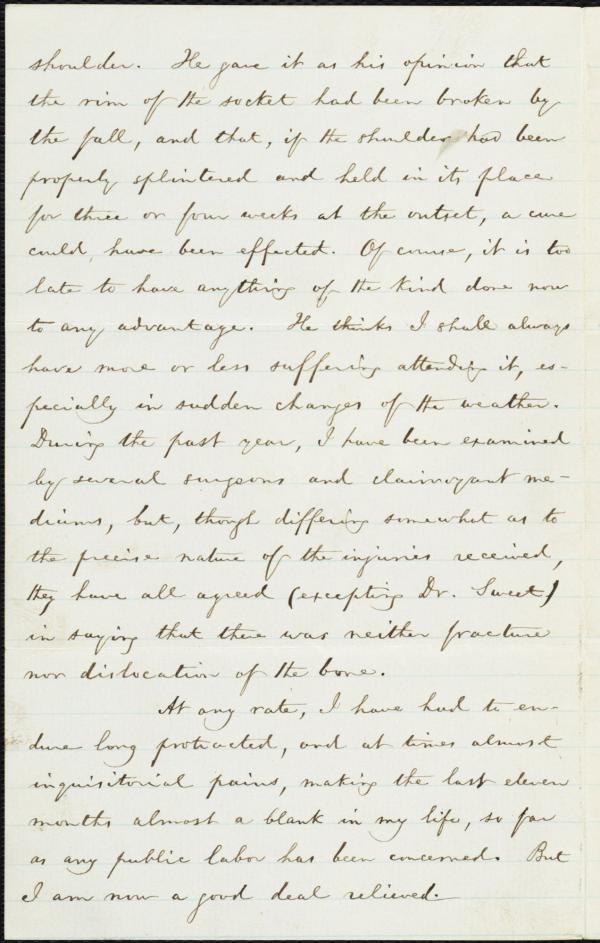 shoulder. He gave it as his opinion that
the rim of the socket had been broken by
the fall, and that, if the shoulder had been
properly splintered and held in its place
for three or four weeks at the outset, a cure
could, have been effected. Of course, it is too
late to have anything of the kind done now
to any advantage. He thinks I shall always
have more or less suffering attending it, es-
pecially in sudden changes of the weather.
During the past year, I have been examined
by several surgeons and clairvoyant me-
diums, but, though differing somewhat as to
the precise nature of the injuries received,
they have all agreed (excepting Dr. Sweet)
in saying that there was neither fracture
nor dislocation of the bone.
At any rate, I have had to en-
dure long protracted, and at times almost
inquisitorial pains, making the last eleven
months almost a blank in my life, so far
as any public labor has been concerned. But
I am now a good deal relieved.